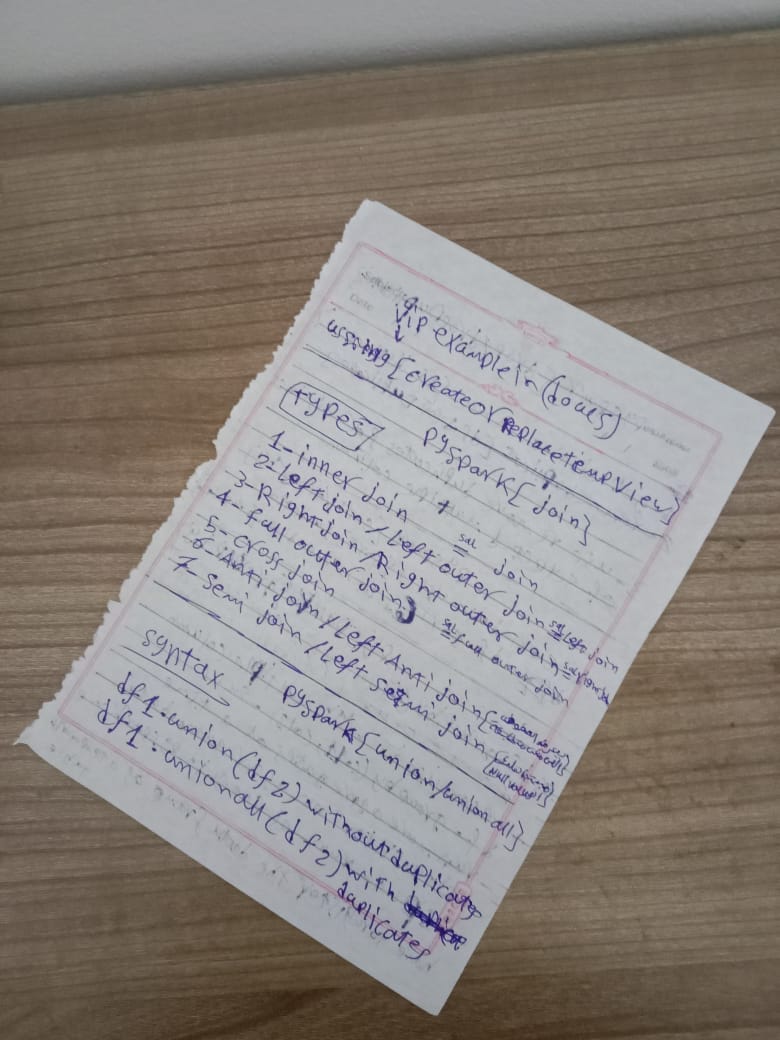 VIP example in (docs)
using {createOrReplaceTempView}
Types
Pyspark [join]
1- inner join = sql join
2- Left join / Left outer join = sql left join
3- Right join / Right outer join = sql
4- full outer join = sql full outer join
5- cross join
6- Anti join / Left Anti join
7- Semi join / Left Semi join
syntax
pyspark [union/union all]
df1.union(df2) without duplicates
df1.unionall(df2) with
duplicates